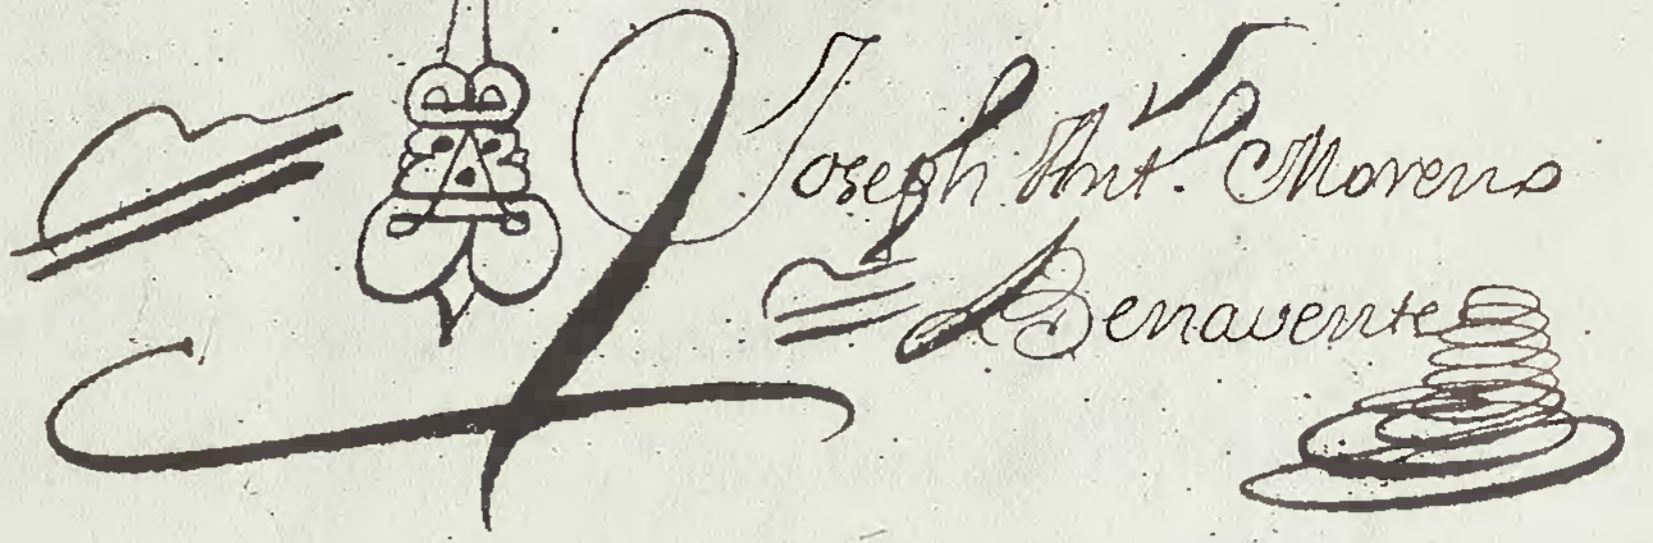 Joseph Ant.º Moreno
Benavente